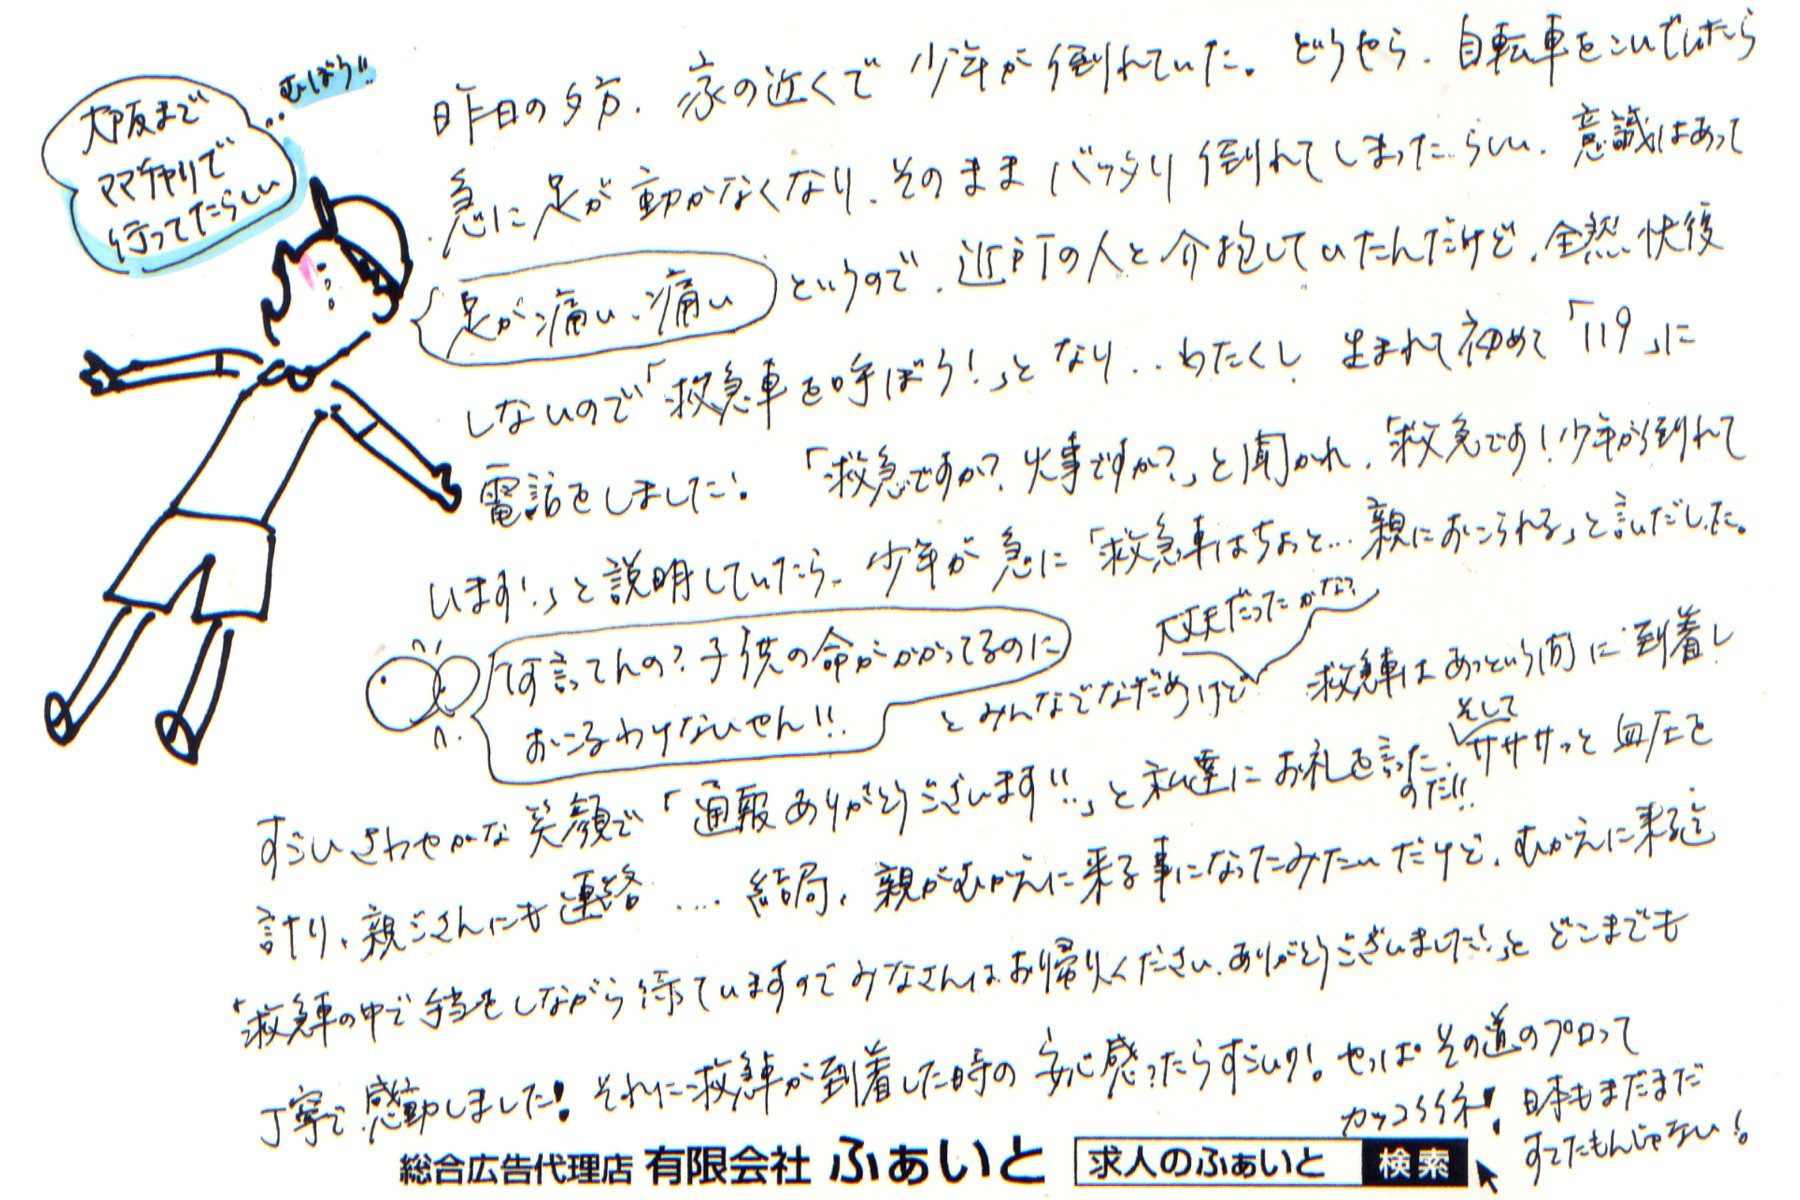 大阪まで
ママチャリで
行ってたらしい
むぼう!!
昨日の夕方、家の近くで少年が倒れていた。どうやら、自転車をこいでいたら
急に足が動かなくなり、そのままバッタリ倒れてしまったらしい、意識はあって
足が痛い、痛い というので、近所の人と介抱していたんだけど、全然快復
しないので「救急車を呼ぼう!」となり、、わたくし 生まれて初めて「119」に
電話をしました!。「救急ですか?火事ですか?」と聞かれ、「救急です!少年が倒れて
います!」と説明していたら、少年が急に「救急車はちょと…親におこられる」と言いだした。
何言ってんの?子供の命がかかってるのに
おこるわけないやん!!
とみんなでなだめけど
大丈夫だったかな?
救急車はあっという間に到着し
すごいさわやかな笑顔で「通報ありがとうございます!!」と私達にお礼を言った
のだ!!
そして
ササササっと血圧を
計り、親ごさんにも連絡....結局、親がむかえに来る事になったみたいだけど、むかえに来る迄
「救急車の中で手当をしながら待っていますのでみなさんはお帰りください、ありがとうございました!」とどこまでも
丁寧で感動しました!それに救急車が到着した時の安心感ったらすごい!やっぱその道のプロって
カッコイイネ!
日本もまだまだ
すてたもんじゃない!
総合広告代理店 有限会社 ふぁいと 求人のふぁいと 検索